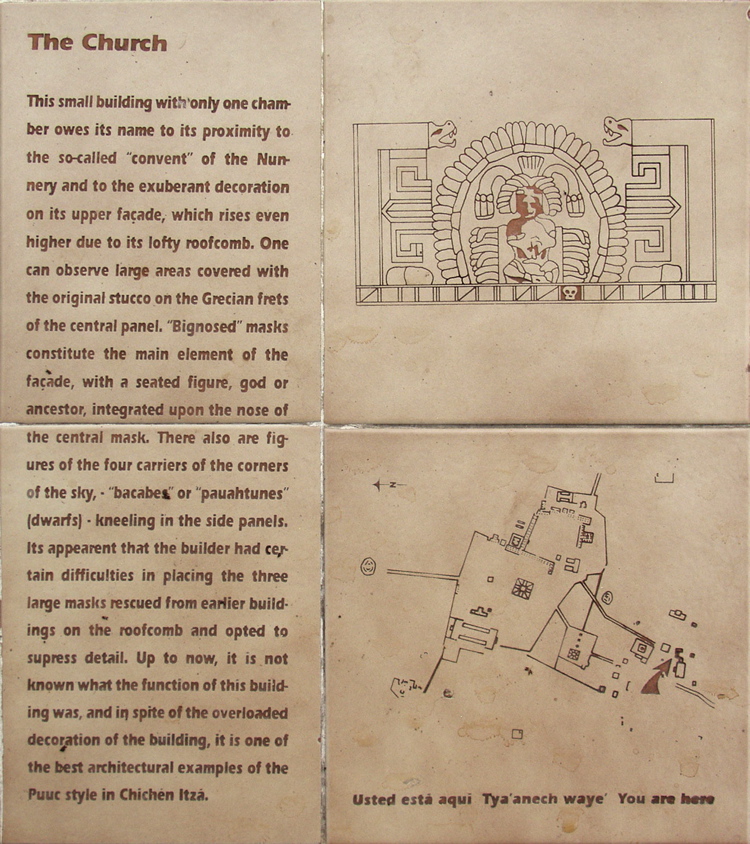 The Church
This small building with only one cham-
ber owes its name to its proximity to
the so-called "convent" of the Nun-
nery and to the exuberant decoration
on its upper façade, which rises even
higher due to its lofty roofcomb. One
can observe large areas covered with
the original stucco on the Grecian frets
of the central panel. "Bignosed" masks
constitute the main element of the
façade, with a seated figure, god or
ancestor, integrated upon the nose of
the central mask. There also are fig-
ures of the four carriers of the corners
of the sky, - "bacabes" or "pauahtunes"
(dwarfs) - kneeling in the side panels.
Its appearent that the builder had cer-
tain difficulties in placing the three
large masks rescued from earlier build-
ings on the roofcomb and opted to
supress detail. Up to now, it is not
known what the function of this build-
ing was, and in spite of the overloaded
decoration of the building, it is one of
the best architectural examples of the
Puuc style in Chichén Itzá.
N
Usted está aquí Tya'anech waye' You are here